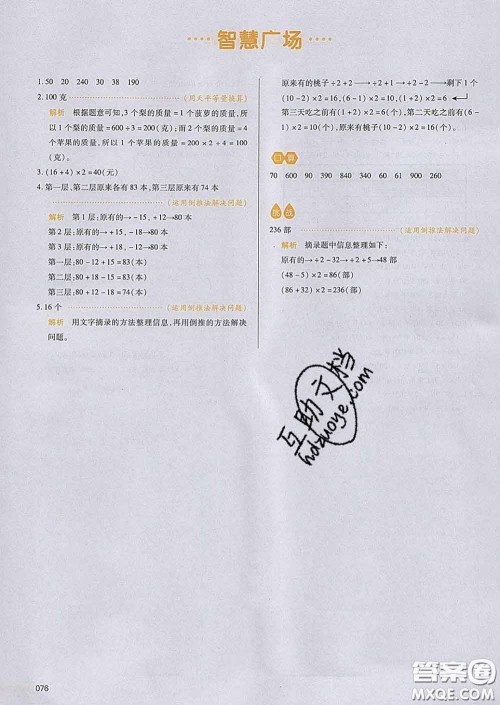 智慧广场
1. 50 20 240 30 38 190
2. 100 克 (用天平等量换算)
解析 根据题意可知,3 个梨的质量=1 个菠萝的质量,所
以 1 个梨的质量=600÷3=200(克);而 2 个苹果的质
量=1 个梨的质量,所以 1 个苹果的质量=200÷2=100
(克)。
3. (16+4)×2=40(元)
4. 第一层、第二层原来各有 83 本,第三层原来有 74 本
(运用倒推法解决问题)
解析 第 1 层:原有的→-15,+12→80 本
第 2 层:原有的→+15,-18→80 本
第 3 层:原有的→-12,+18→80 本
第一层:80-12+15=83(本)
第二层:80+18-15=83(本)
第三层:80+12-18=74(本)
5. 16 个 (运用倒推法解决问题)
解析 用文字摘录的方法整理信息,再用倒推的方法解决
问题。
原来有的桃子÷2+2→÷2+2→÷2+2→剩下 1 个
第三天吃之前有(1+2)×2=6(个),第二天吃之前有
口算
70 600 900 190 60 290 840 340 900 61
挑战
236 部 (运用倒推法解决问题)
解析 摘录题中信息整理如下:
原有的÷2-32→÷2+5→48 部
(48-5)×2=86(部)
(86+32)×2=236(部)
互助文档
hdzuoye.com
076
答案圈
MXQE.COM